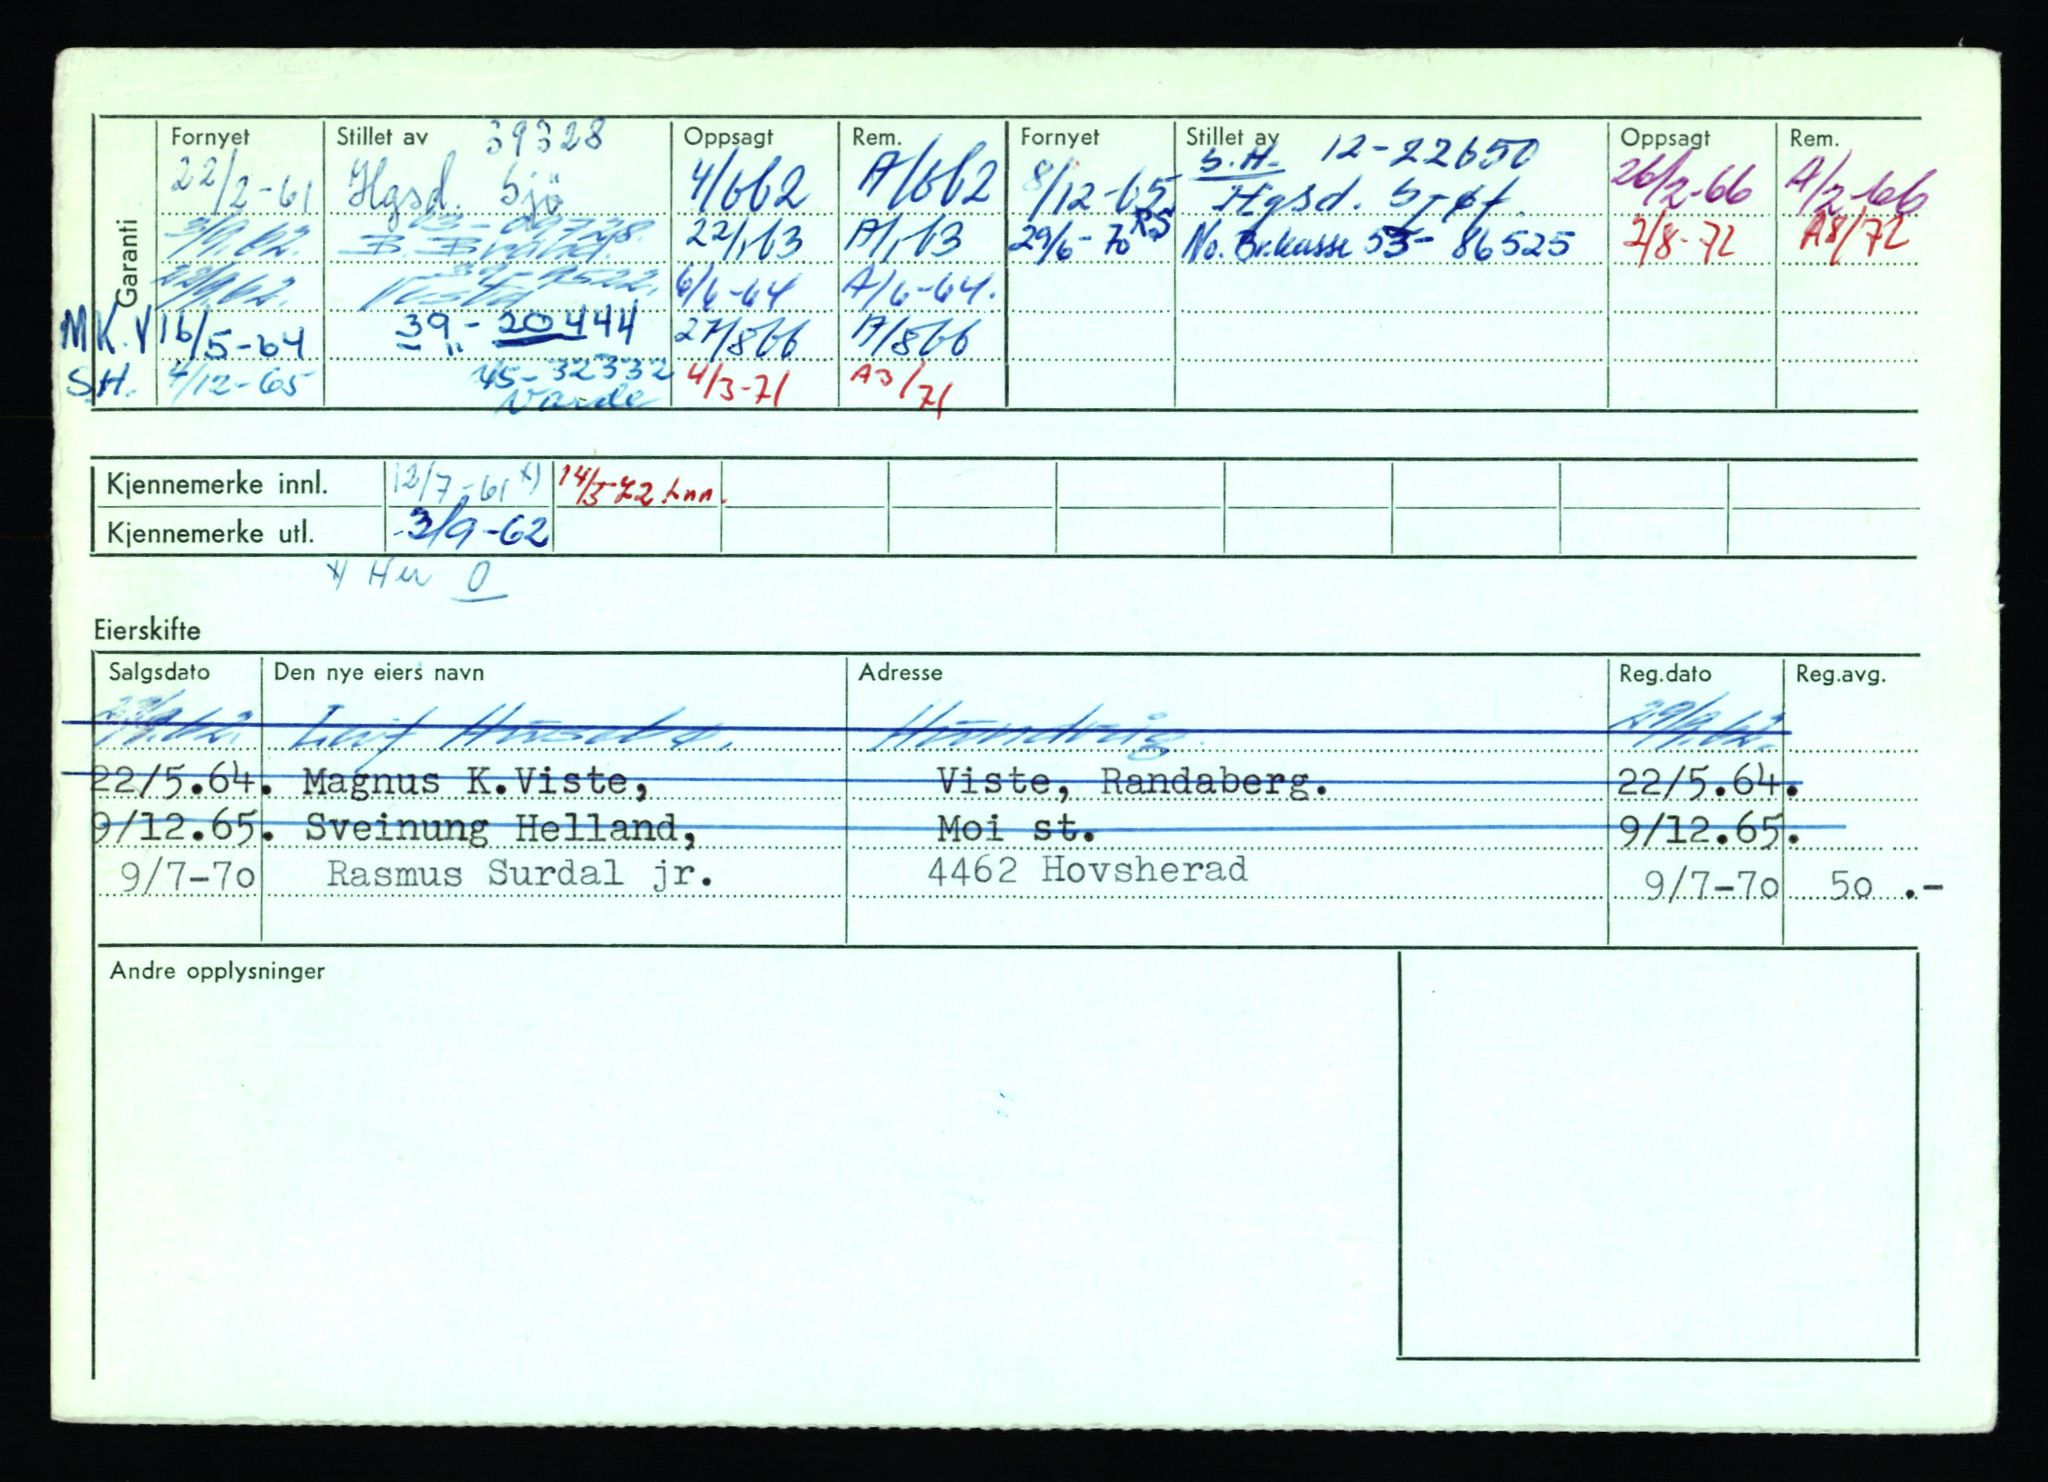 Garanti
Fornyet Stillet av 39328 Oppsagt Rem. Fornyet Stillet av S.H. 12-22650 Oppsagt Rem.
22/2-61 Hgsd. Sjö 4/662 A/662 8/12-65 Hgsd. Sjøf. 26/2-66 A/2-66
3/9.62. 22/1,63 A/1,63 29/6-70 RS No. Br.kasse 53-86525 2/8-72 A8/72
22/9.62. Vesta 6/6-64 A/6-64.
M K.V 16/5-64 39-20444 27/866 A/866
S.H. 4/12-65 45-32332 4/3-71 A3/71
Varde
Kjennemerke innl. 12/7-61 x) 14/3-72 Inn.
Kjennemerke utl. 3/9-62
x) Her 0
Eierskifte
Salgsdato Den nye eiers navn Adresse Reg.dato Reg.avg.
Leif 29/9.62.
22/5.64. Magnus K.Viste, Viste, Randaberg. 22/5.64.
9/12.65. Sveinung Helland, Moi st. 9/12.65.
9/7-70 Rasmus Surdal jr. 4462 Hovsherad 9/7-70 50 .-
Andre opplysninger